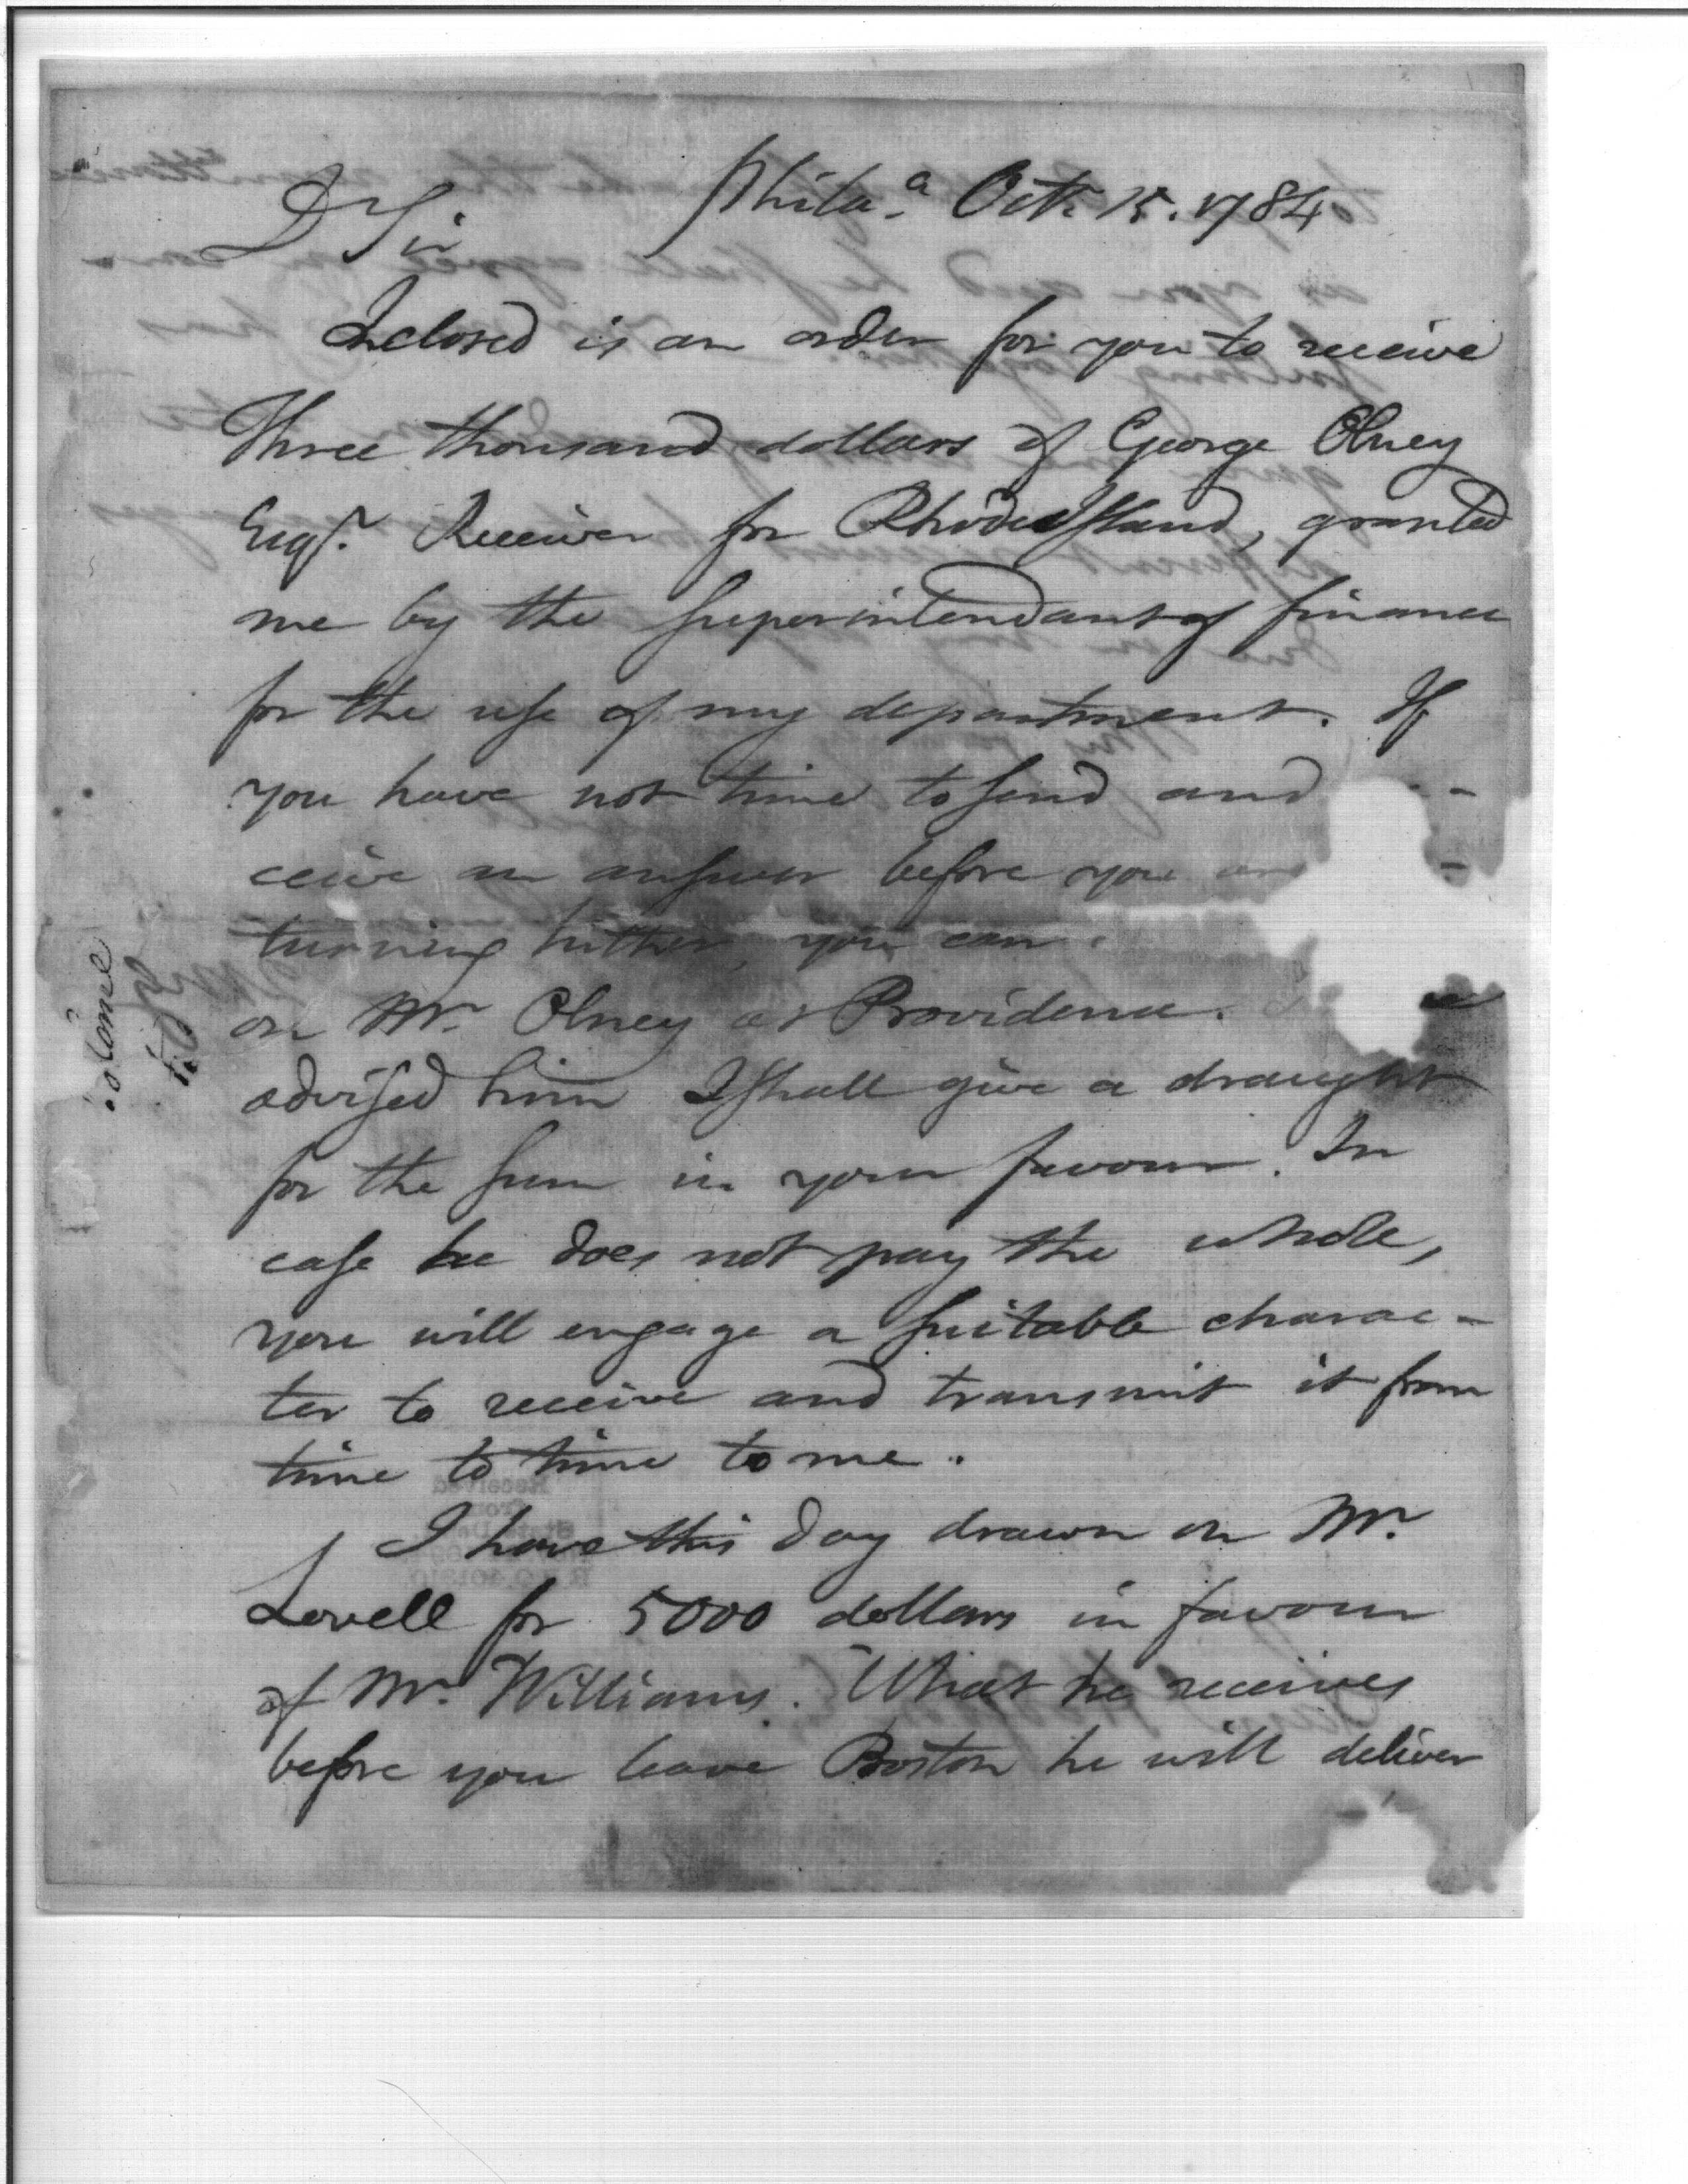 Phila.ᵃ Octr. 15. 1784
D Sir
Inclosed is an order for you to receive
Three thousand dollars of George Olney
Esqr. Receiver for Rhode Island, granted
me by the Superintendant of finance
for the use of my department. If
you have not time to send and -
ceive an answer before you -
turning hither, you can
on Mr. Olney at Providence.
advised him I shall give a draught
for the sum in your favour. In
case he does not pay the whole,
you will engage a suitable charac-
ter to receive and transmit it from
time to time to me.
I have this day drawn on Mr.
Lovell for 5000 dollars in favour
of Mr. Williams. What he receives
before you leave Boston he will deliver